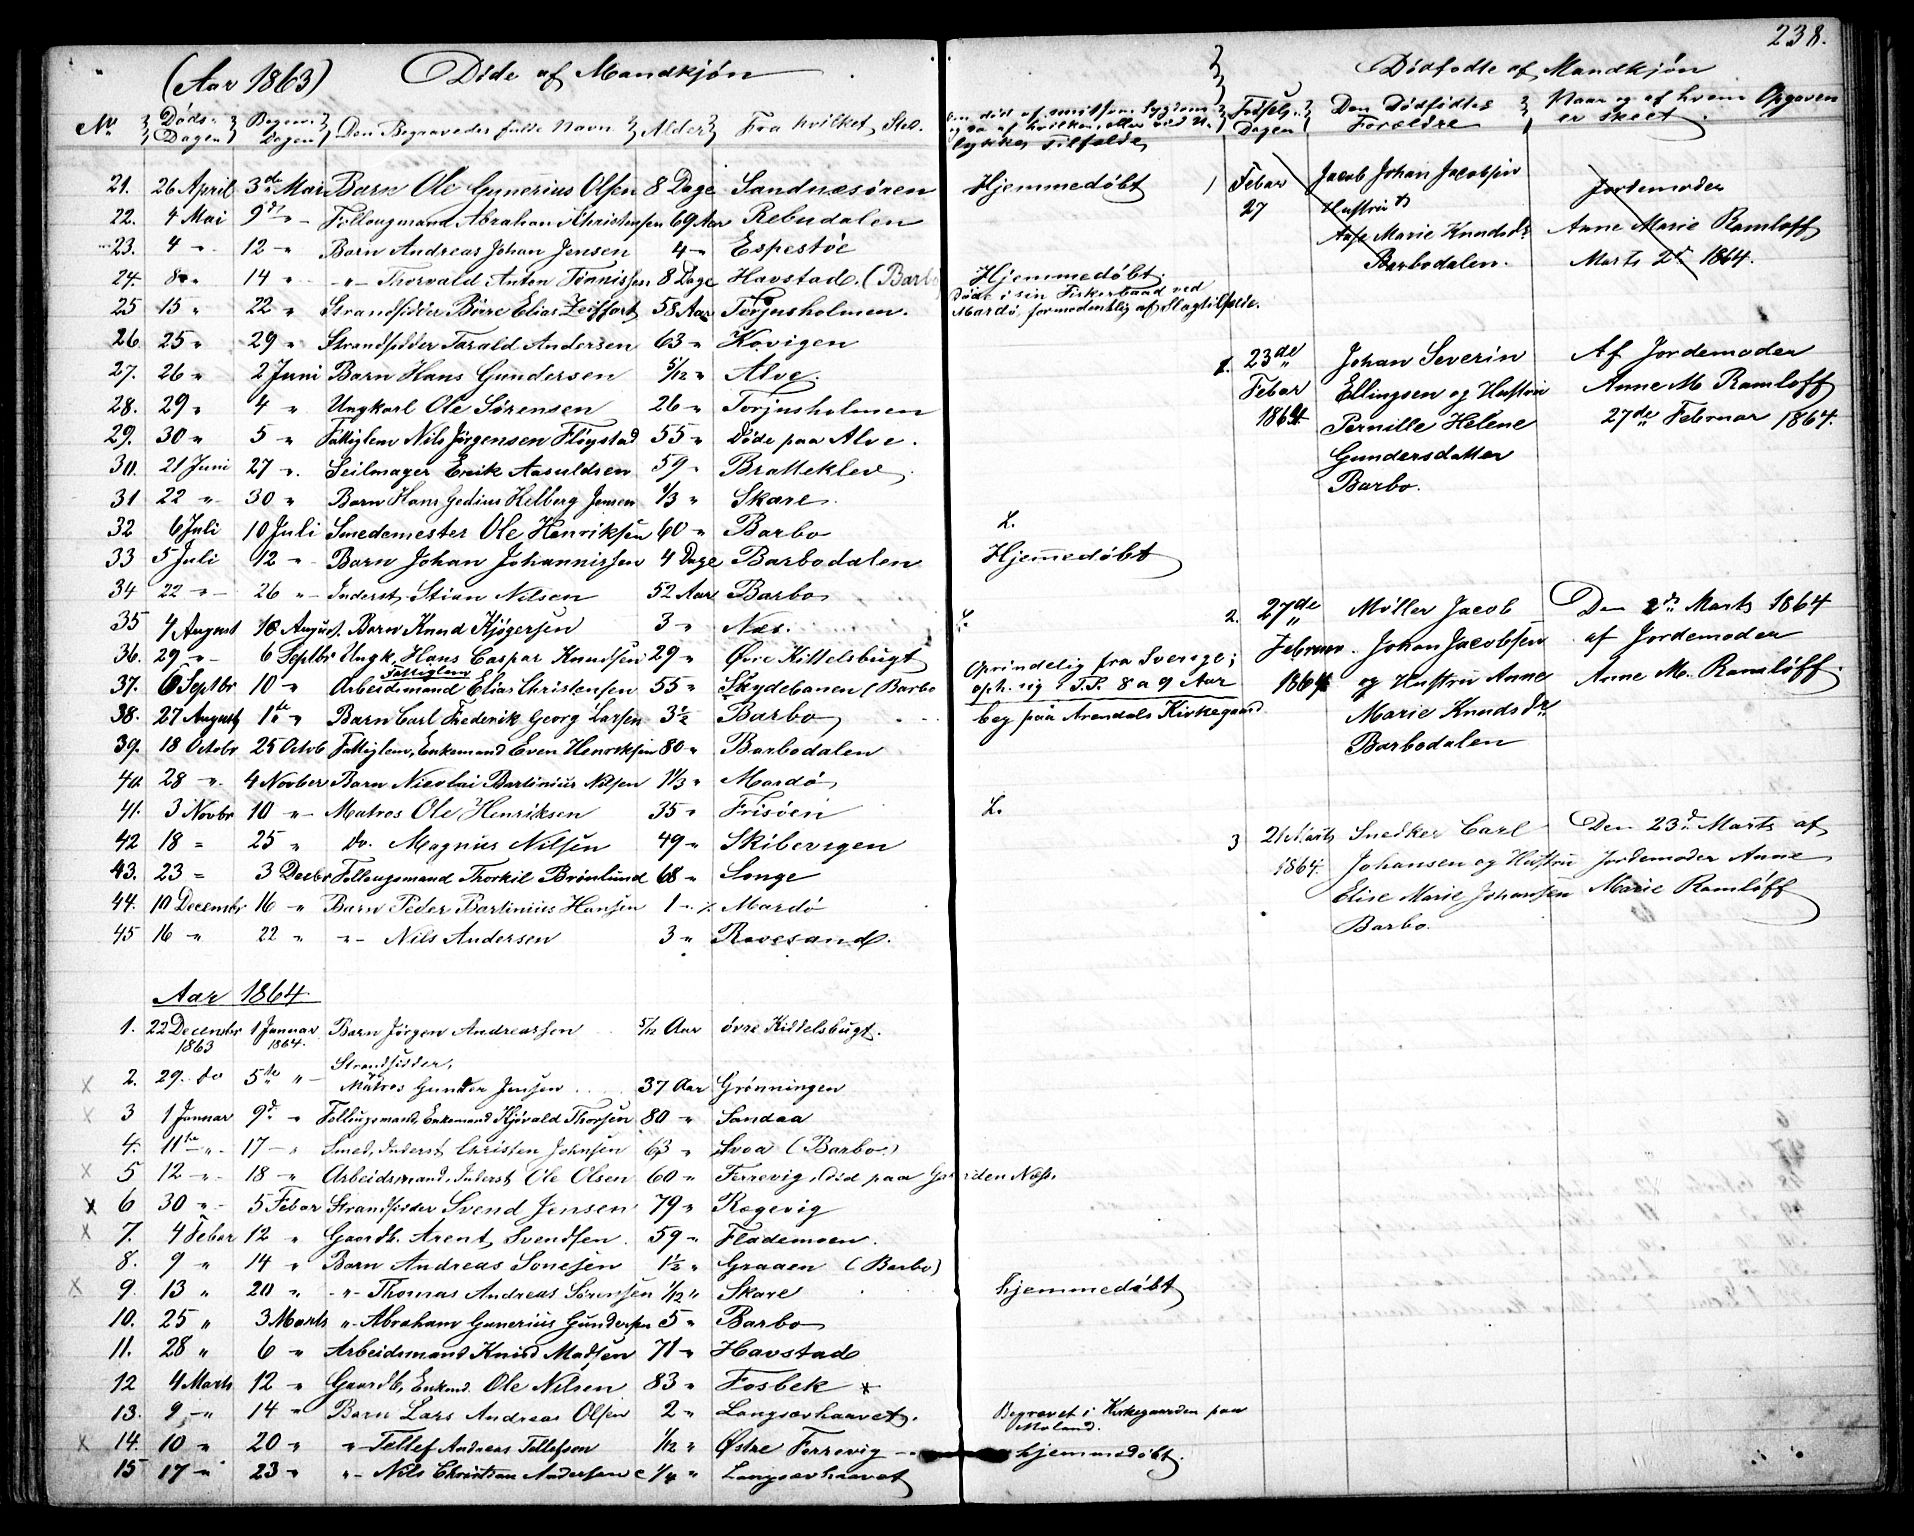 238.
(Aar 1863) Døde af Mandkjøn
No Døds-Dagen Begrav. Dagen Den Begravedes fulde Navn Alder Fra hvilket Sted.
21. 26 April 3de Mai Barn Ole Gunerius Olsen 8 Dage Sandnæsøren Hjemmedøbt
22. 4 Mai 9de " Follougmand Abraham Christiansen 69 Aar Rebudalen
23. 4 " 12 " Barn Andreas Johan Jensen 4 " Espestøe
24. 8 " 14 " " Thorvald Anton Tønnissen 8 Dage Havstad (Barbo Hjemmedøbt.
25 15 " 22 " Strandsidder Børre Elias Zeiffart 58 Aar Torjusholmen. Døde i sin Fiskerbaad ved
Mardø, formodentlig af Slagtilfælde.
26 25 " 29 " Strandsidder Tarald Andersen 63 " Kovigen
27. 26 " 2 Juni Barn Hans Gundersen 5/12 " Alve.
28. 29 " 4 " Ungkarl Ole Sørensen 26 " Torjusholmen
29. 30 " 5 " Fattiglem Nils Jørgensen Fløystad 55 " Døde paa Alve.
30. 21 Juni 27 " Seilmager Erik Aasuldsen 59 " Bratteklev
31 22 " 30 " Barn Hans Gedius Helberg Jensen 1/3 " Skare
32 6 Juli 10 Juli Smedemester Ole Henriksen 60 " Barbo L.
33 5 Juli 12 " Barn Johan Johannissen 4 Dage Barbodalen Hjemmedøbt
34 22 " 26 " Inderst Stian Nilsen 52 Aar Barbo
35 4 August 10 August. Barn Knud Kjøgersen 3 " Næs. L.
36. 29 " 6 Septbr Ungk. Hans Caspar Knudsen 29 " Øvre Kittelsbugt Oprindelig fra Sverige;
Fattiglem
37. 6 Septbr 10 " Arbeidsmand Elias Christensen 55 " Skydebanen (Barbo oph. sig i T.P. 8 a 9 Aar
38. 27 August 1ste " Barn Carl Frederik Georg Larsen 3½ " Barbo beg paa Arendals Kirkegaard
39. 18 Octobr 25 Octob Fattiglem, Enkemand Even Henriksen 80 " Barbodalen
40. 28 " 4 Novber Barn Nicolai Bertinius Nilsen 1 1/3 " Mardø
41. 3 Novbr 10 " Matros Ole Henriksen 35 " Frisøen L.
42 18 " 25 " do. Magnus Nilsen 49 " Skibevigen
43. 23 " 3 Decbr Follougsmand Thorkil Brønlund 68 " Songe
44. 10 Decembr 16 " Barn Peder Bartinius Hansen 1 " Mardø
45 16 " 22 " " Nils Andersen 3 " Revesand.
Aar 1864
1. 22 Decembr 1 Januar Barn Jørgen Andreassen 5/12 Aar øvre Kiddelsbugt.
1863 1864.
Strandsidder,
2. 29. do 5te " Matros Gunder Jensen 37 Aar Grønningen
3 1 Januar 9d " Follougsmand, Enkemand Kjøvald Thorsen 80 " Sandaa
4. 11te " 17 " Smed, Inderst Christen Johnsen 63 " Svoa (Barbo)
5 12 " 18 " Arbeidsmand, Inderst Ole Olsen 60 " Ferrevig, død paa Gaarden Næss.
6 30 " 5 Febar Strandsidder Svend Jensen 79 " Rægevig
7. 4 Febar 12 " Gaardb. Arent Svendsen 59 " Flademoen.
8. 9 " 14 " Barn Andreas Sonesen 1½ " Graaen (Barbo)
9. 13 " 20 " " Thomas Andreas Sørensen 1/12 " Skare hjemmedøbt
10. 25 " 3 Marts " Abraham Gunerius Gundersen 5 " Barbo
11. 28 " 6 " Arbeidsmand Knud Madsen 71 " Havstad
12 4 Marts 12 " Gaardb, Enkmd. Ole Nilsen 83 " Fosbek
13. 9 " 14 " Barn Lars Andreas Olsen 2 " Langsævhaavet. Begravet i Kirkegaarden paa
Moland.
14. 10 " 20 " " Tellef Andreas Tellefsen 1/12 " Østre Ferrevig hjemmedøbt.
15 17 " 23 " " Nils Christian Andersen 1/4 " Langsævhaavet
Om død af smitsom Sygdom
og da af hvilken, eller ved U-
lykkes Tilfælde
Dødfødte af Mandkjøn
Fødsels-Dagen Den Dødfødtes Forældre Naar og af hvem Opgaven er skeet
1 Febar Jacob Johan Jacobsen Jordemoder
27 Hustru Anne Marie Ramløff
Marie Knudsdr Marts 2d 1864.
Barbodalen.
1. 23de Johan Severin Af Jordemoder
Febar Ellingsen og Hustru Anne M. Ramløff
1864 Pernille Helene 27de Februar 1864.
Gundersdatter
Barbo.
2. 27de Møller Jacob Den 2d Marts 1864
Februar Johan Jacobsen af Jordemoder
1864 og Hustru Anne Anne M. Ramløff.
Marie Knudsdr
Barbodalen
3 21 Marts Snedker Carl Den 23d Marts af
1864. Johansen og Hustru Jordemoder Anne
Elise Marie Johansen Marie Ramløff
Barbo.